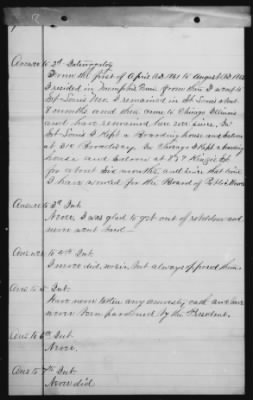 Answer to 2d Interrogatory
From the first of April AD. 1861 to August AD. 1862
I resided in Memphis Tenn from then I went to
St Louis Mo. I remained in St Louis about
8 months and then came to Chicago Illinois
and have remained here ever since. In
St Louis I Kept a Boarding house and Saloon
at Broadway. In Chicago I Kept a boarding
house and Saloon at Kinzie St
for about six months, and since that time
I have worked for the Board of Public Works
Answer to 3d Int.
Never, I was glad to get out of rebeldom and
never went back
Answer to 4th Int.
I never did, nor in but always opposed them.
Ans to 5 Int.
Have never taken any amnesty oath and have
never been pardoned by the President.
Ans to 6th Int.
Never.
Ans to 7th Int.
Never did